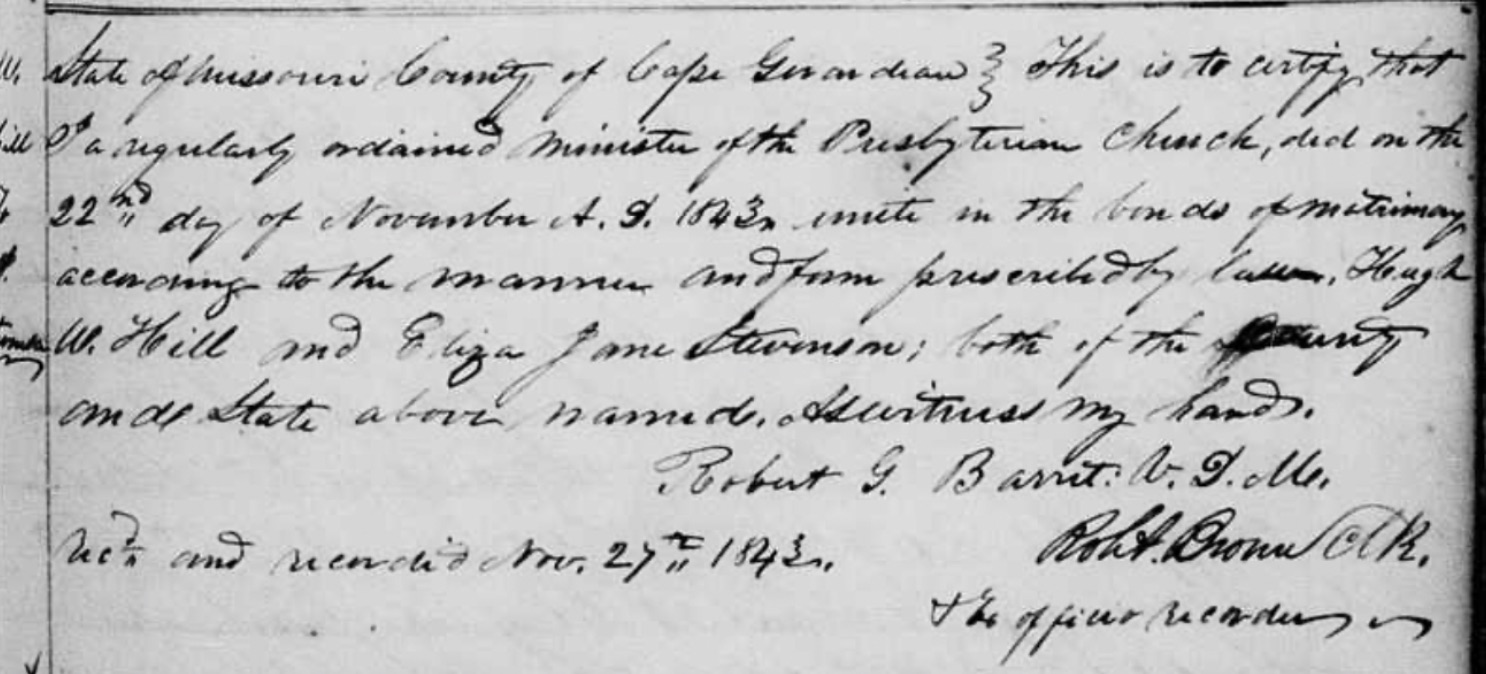 State of Missouri County of Cape Girardeau } This is to certify that
I a regularly ordained minister of the Presbyterian Church, did on the
22nd day of November A. D. 1843, unite in the bonds of matrimony
according to the manner and form prescribed by law, Hugh
W. Hill and Eliza Jane Stevenson; both of the County
and State above named. As witness my hand.
Robert G. Barret: V. D. M.
Rec'd and recorded Nov. 27th 1843. Robt. Brown Clk.
& Ex officio recorder